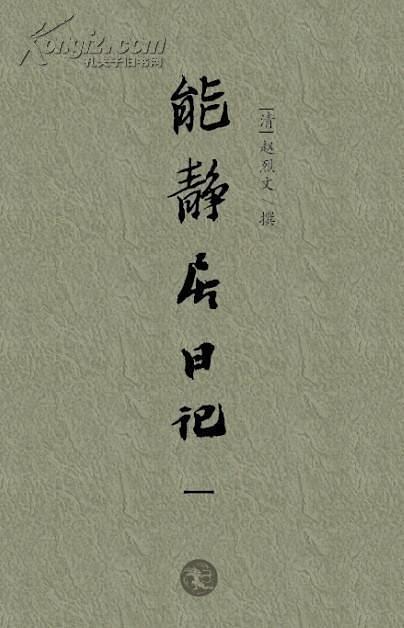 Kongfz.com
孔夫子旧书网
能静居日记
一
[清]赵烈文 撰